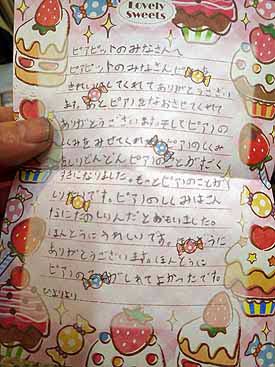 Lovely
Sweets
ピアピットのみなさんへ
ピアピットのみなさんピ
きれいにしてくれてありがとうござい
ます。あとピアノをなおさせてくれて
ありがとうございます。そしてピアノの
しくみをみせてくれて ピアノのしくみ
をしりどんどんピアノのことがだい
すきになりました。もっとピアノのことが
しりたいです。ピアノのしくみはこん
なにたのしいんだとおもいました。
ほんとうにうれしいです。ほんとうに
ありがとうございます。ほんとうに
ピアノの がしれてよかったです。
ひよりより